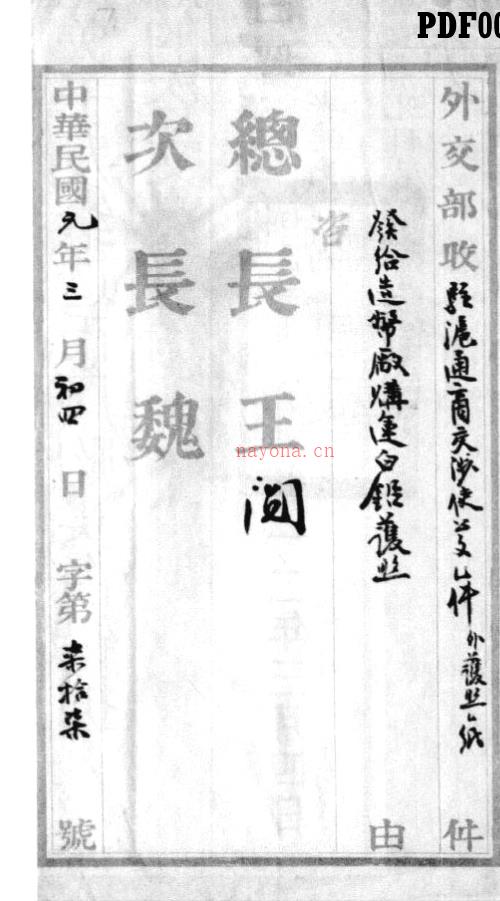 PDF00
外交部收駐滬通商交涉使文一件外護照一紙 件
發給造幣廠購運白鉛護照 由
咨
總長王 閱
次長魏
中華民國元年三月初四日 字第柒拾柒號
nayona.cn